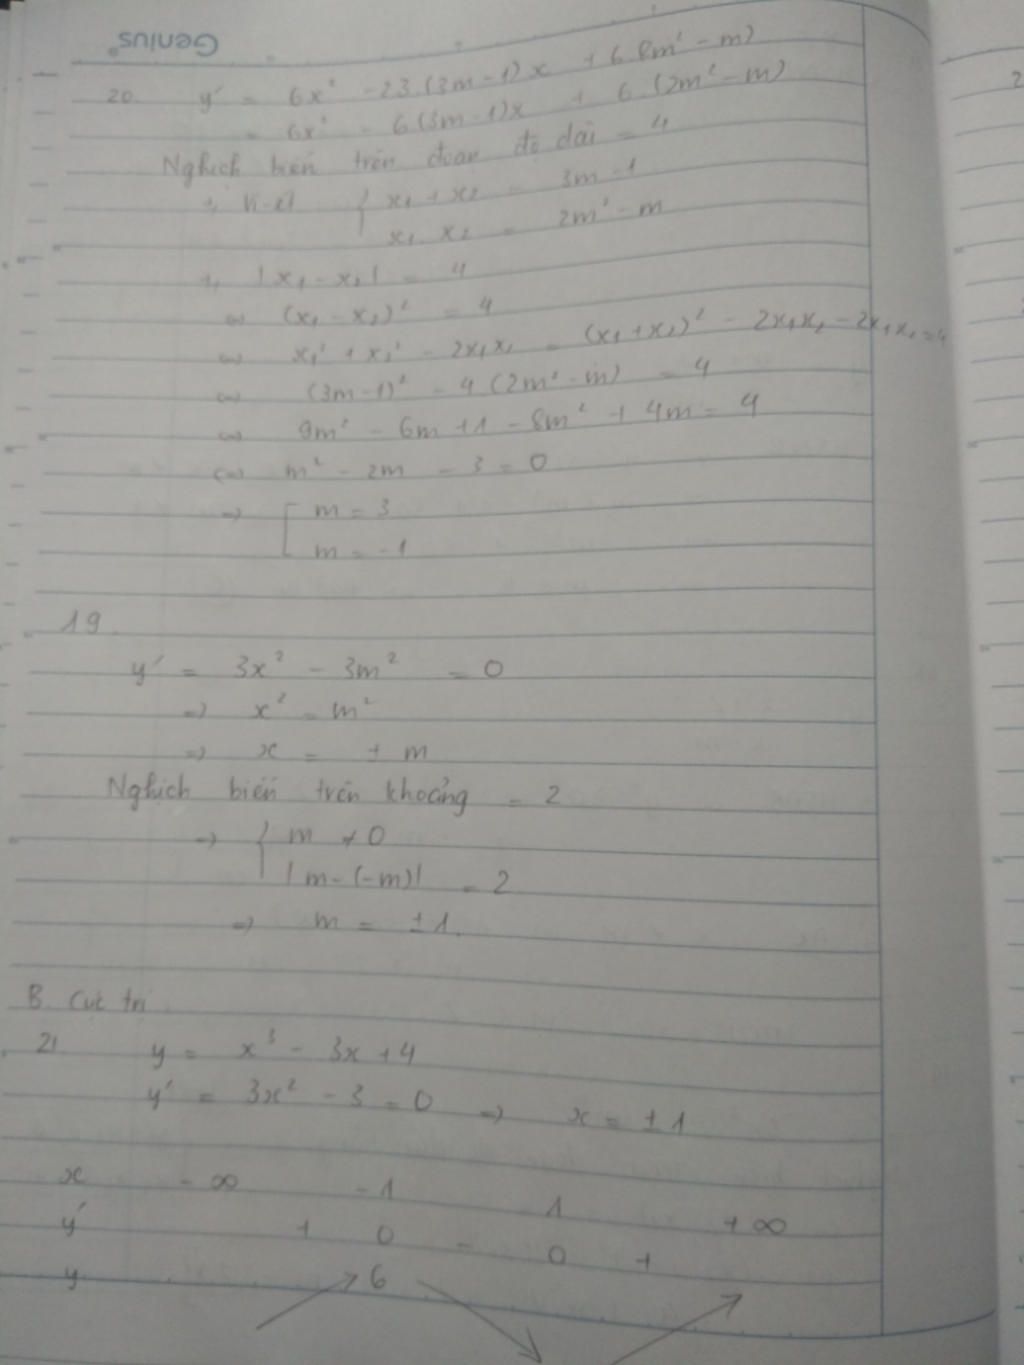 Genius
20. y' = 6x² - 23.(3m-1)x + 6.(2m²-m)
= 6x² - 6(3m-1)x + 6.(2m²-m)
Nghịch biến trên đoạn độ dài = 4
+, Vi-et { x₁ + x₂ = 3m-1
x₁.x₂ = 2m² - m
+, |x₁ - x₂| = 4
⇔ (x₁ - x₂)² = 4
⇔ x₁² + x₂² - 2x₁x₂ = (x₁+x₂)² - 2x₁x₂ - 2x₁x₂ = 4
⇔ (3m-1)² - 4(2m²-m) = 4
⇔ 9m² - 6m + 1 - 8m² + 4m = 4
⇔ m² - 2m - 3 = 0
⇒ [ m = 3
m = -1
19.
y' = 3x² - 3m² = 0
⇒ x² = m²
⇒ x = ± m
Nghịch biến trên khoảng = 2
⇒ { m ≠ 0
|m-(-m)| = 2
⇒ m = ±1.
B. Cực trị
21 y = x³ - 3x + 4
y' = 3x² - 3 = 0 ⇒ x = ±1
x -∞ -1 1 +∞
y' + 0 - 0 +
y 6